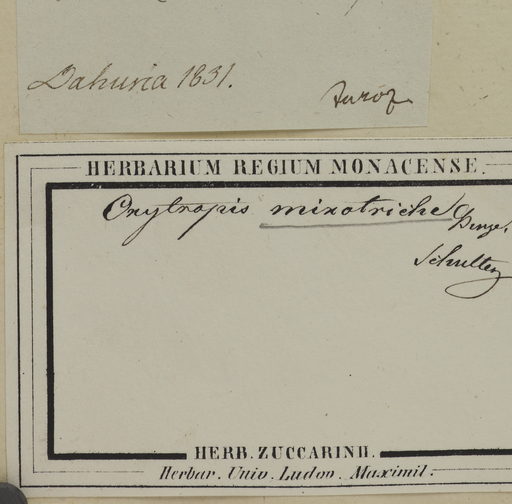 Dahuria 1831.
Turcz
HERBARIUM REGIUM MONACENSE.
Oxytropis mixotriche Bunge.
Schultes
HERB. ZUCCARINII.
Herbar. Univ. Ludov. Maximil.